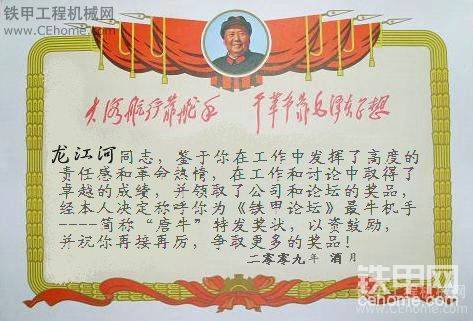 铁甲工程机械网
www.CEhome.com
大海航行靠舵手 干革命靠毛泽东思想
龙江河同志，鉴于你在工作中发挥了高度的
责任感和革命热情，在工作和讨论中取得了
卓越的成绩，并领取了公司和论坛的奖品，
经本人决定称呼你为《铁甲论坛》最牛机手
----简称“唐牛”特发奖状，以资鼓励，
并祝你再接再厉，争取更多的奖品！
二零零九年 酒月
铁甲网
CEhome.com